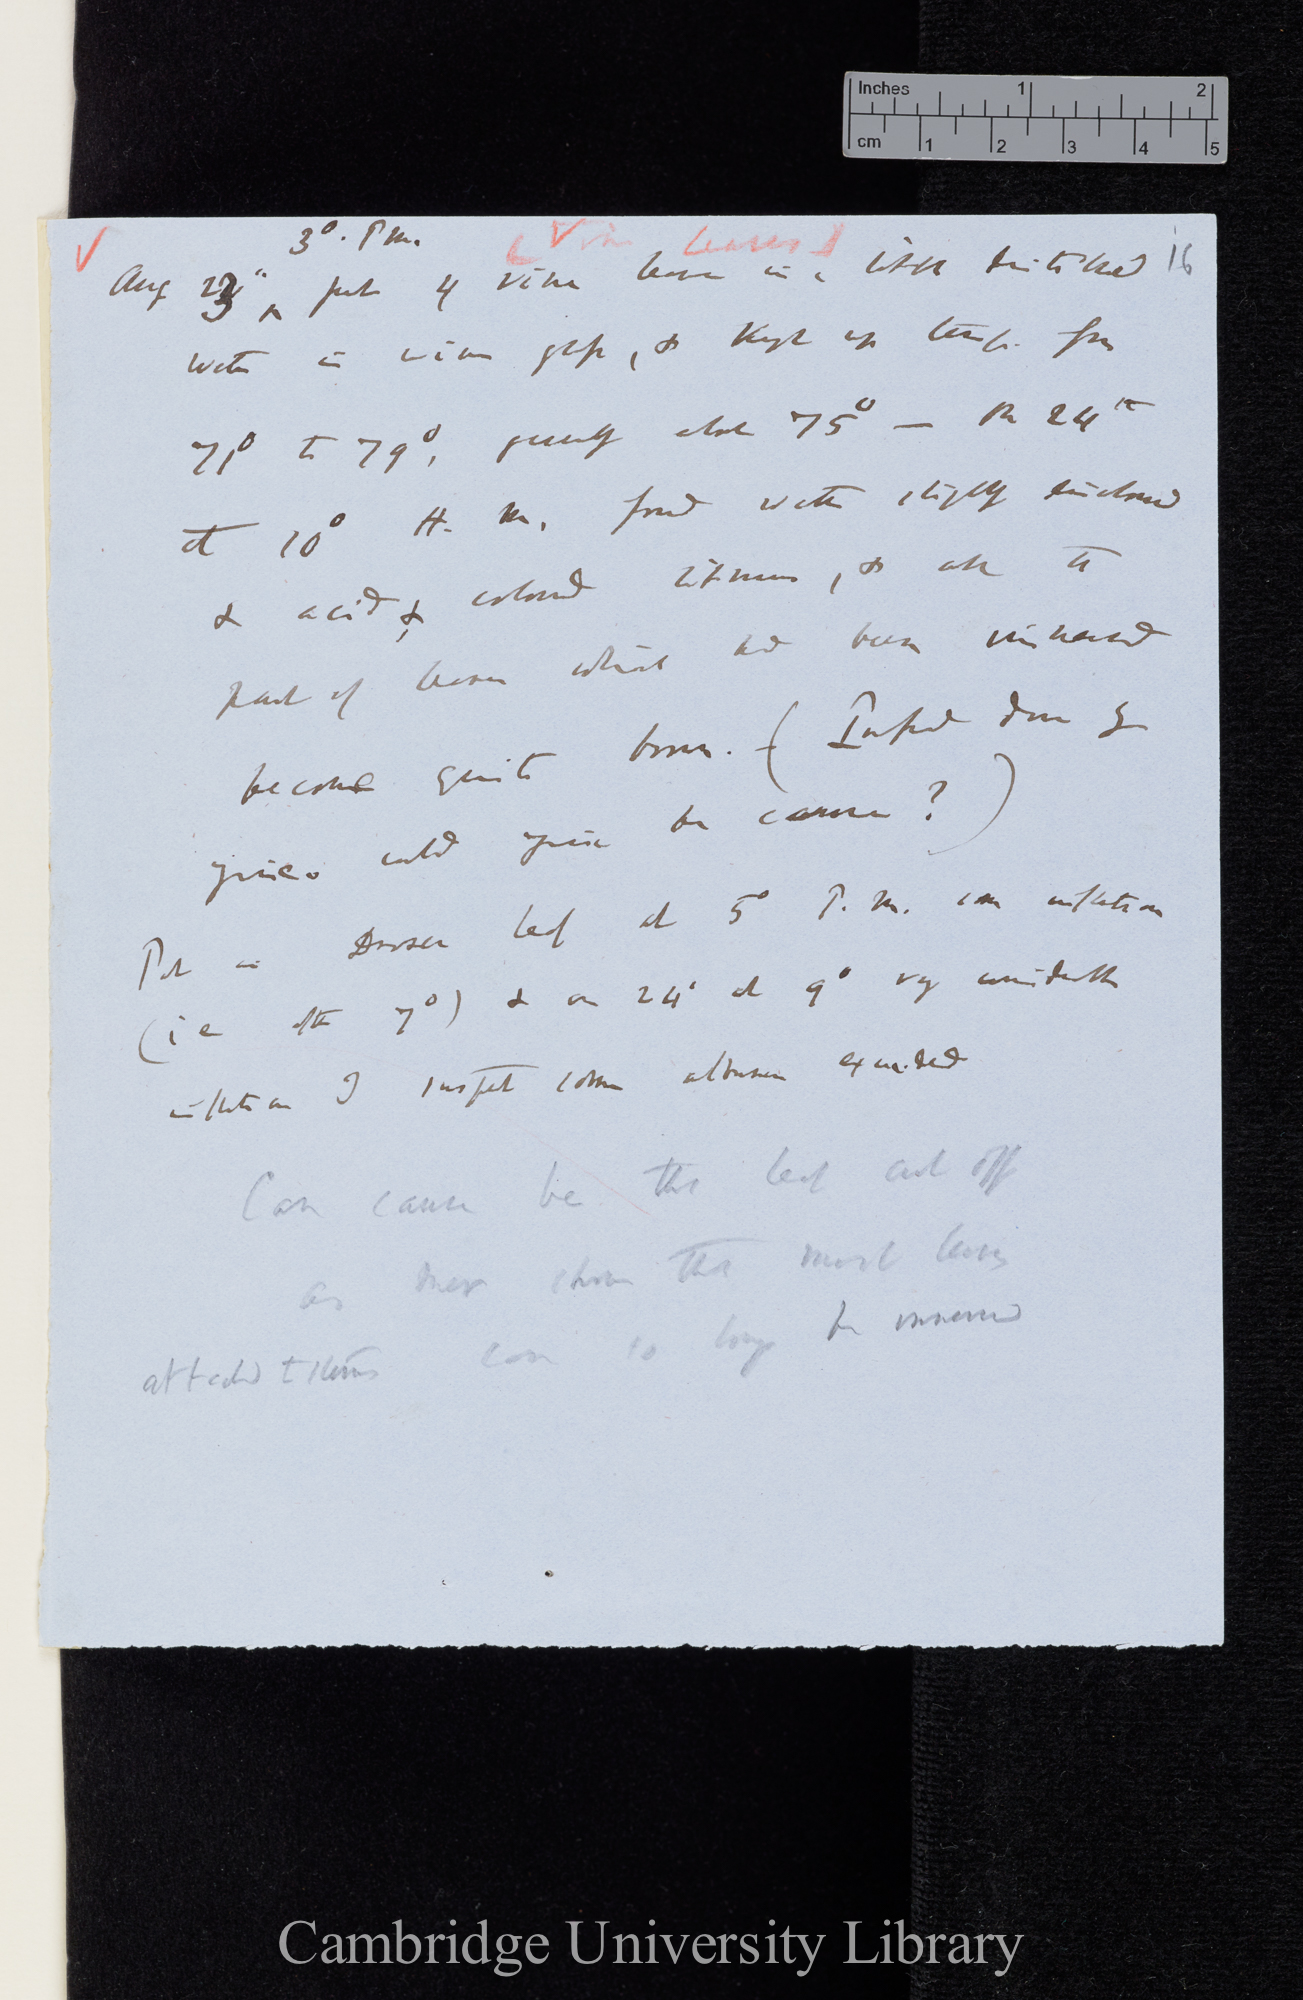 Inches 1 2
cm 1 2 3 4 5
3°. P.m.
(Vine leaves)
16
Aug 23 put 4 vine leaves in a little distilled
water in wine glass, & kept up temp. from
71° to 79°, generally about 75° — On 24th
at 10° A. m. found water slightly
& acid & coloured litmus, & all the
part of leaves which had been immersed
become quite brown. — ( Infused drop of
juice. would juice be cause? )
Put on Drosera leaf at 5° P. m. some inflection
(i e after 7°) & on 24 at 9° very considerable
inflection I suspect some albumen exuded
Can cause be the leaf cut off
as Mer shows that most leaves
attached to stems can so long be immersed
Cambridge University Library